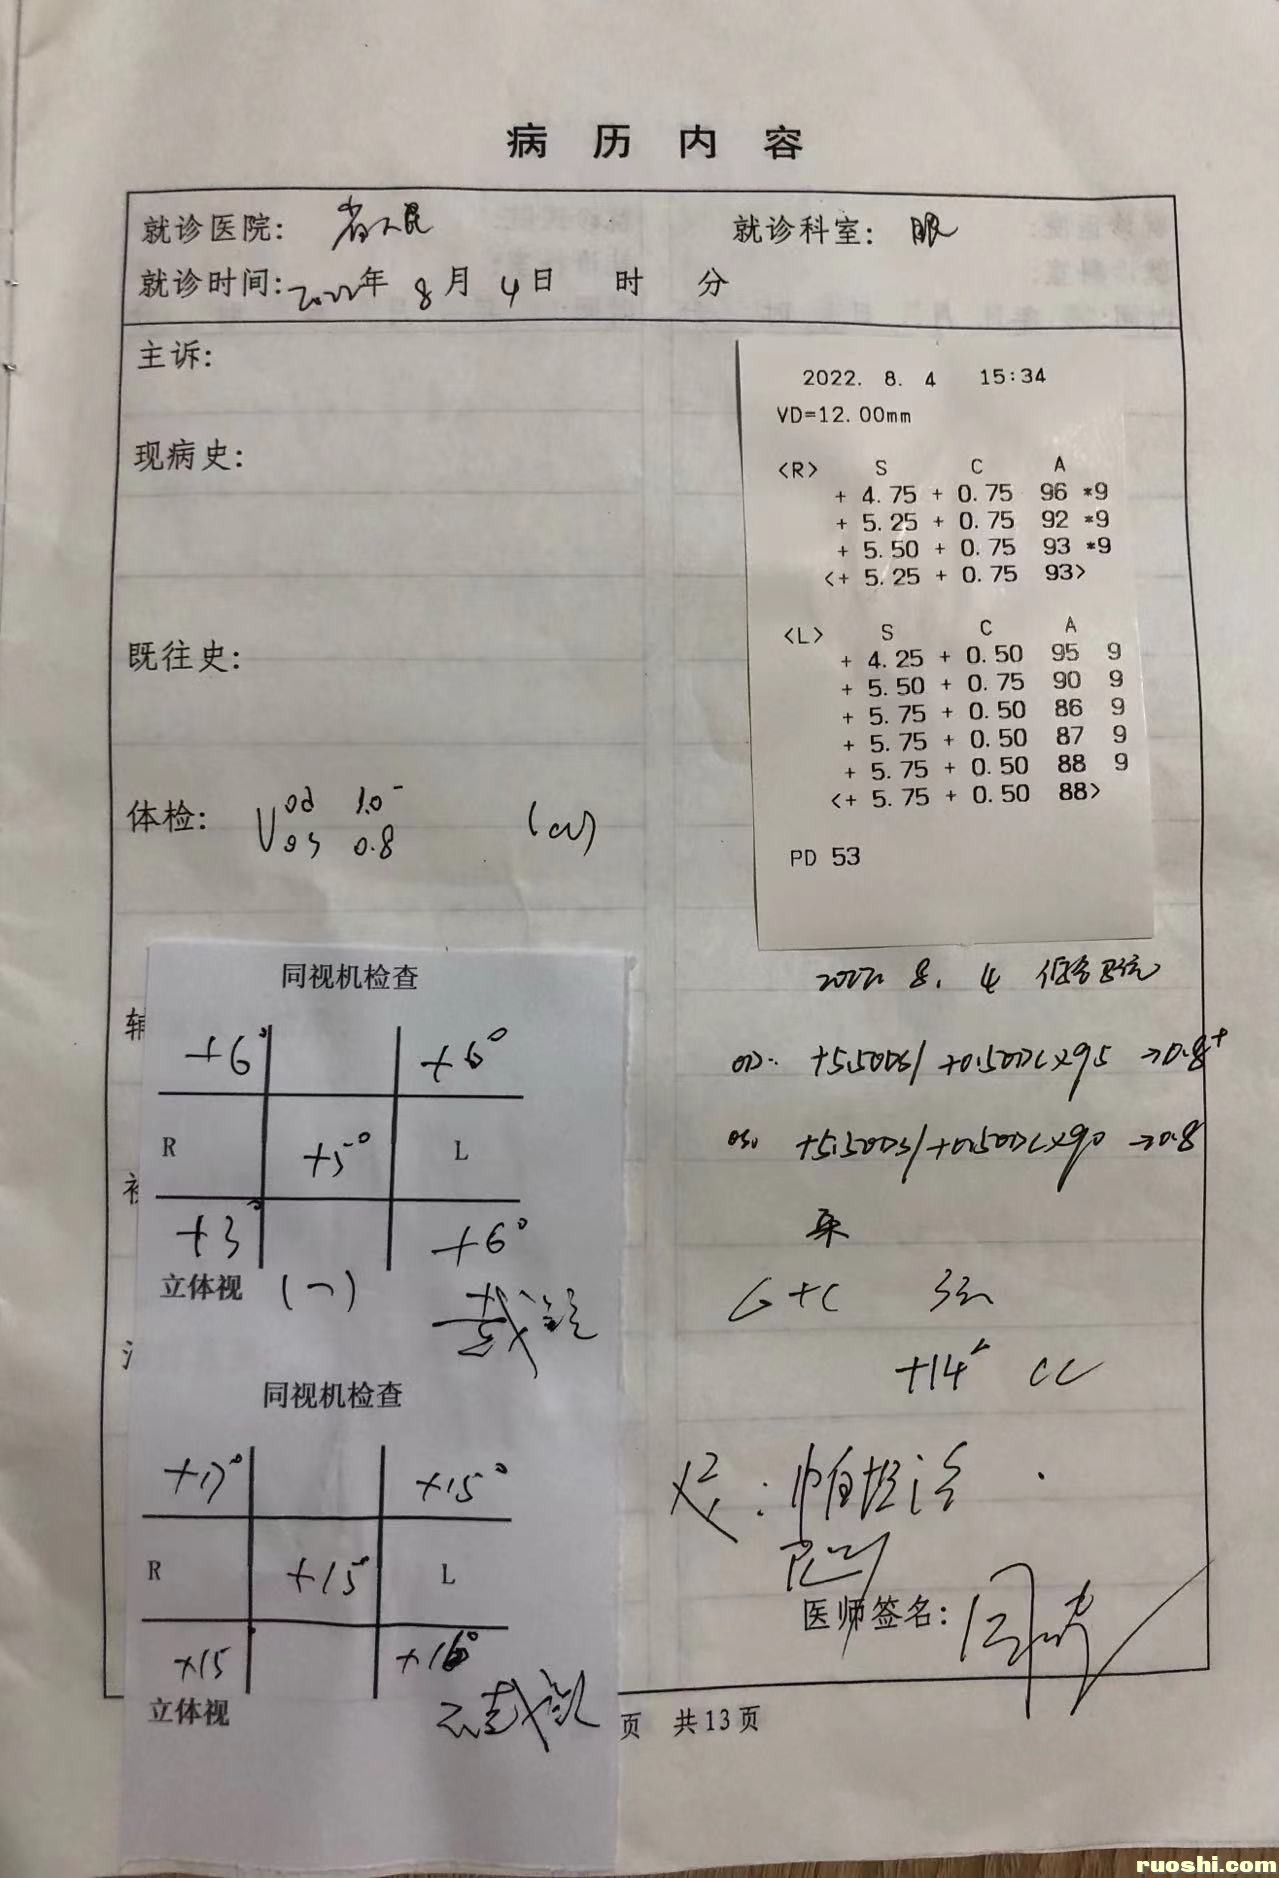 病历内容
就诊医院: 省人民 就诊科室: 眼
就诊时间: 2022年 8月 4日 时 分
主诉:
现病史:
既往史:
体检: V od 1.0⁻ (cc)
os 0.8
2022. 8. 4 15:34
VD=12.00mm
<R> S C A
+ 4.75 + 0.75 96 *9
+ 5.25 + 0.75 92 *9
+ 5.50 + 0.75 93 *9
<+ 5.25 + 0.75 93>
<L> S C A
+ 4.25 + 0.50 95 9
+ 5.50 + 0.75 90 9
+ 5.75 + 0.50 86 9
+ 5.75 + 0.50 87 9
+ 5.75 + 0.50 88 9
<+ 5.75 + 0.50 88>
PD 53
辅
同视机检查
+6° +6°
R +5° L
+3° +6°
立体视 (一)
戴镜
同视机检查
+17° +15°
R +15° L
+15 +16°
立体视
不戴镜
2022. 8. 4
OD: +5.50DS/+0.50DC×95 →0.8⁺
OS: +5.50DS/+0.50DC×90 →0.8
+14△ CC
医师签名:
页 共13页
ruoshi.com